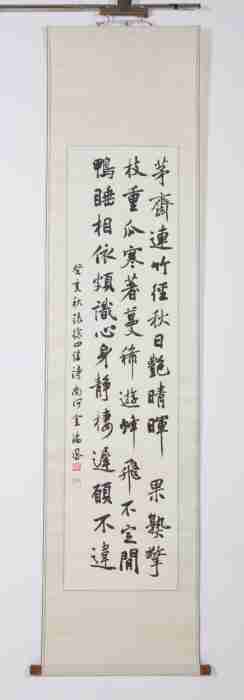 茅齋連竹徑秋日艷晴暉果熟擎
枝重瓜寒著蔓稀遊蜂飛不定閒
鴨睡相依頗識心身靜棲遲願不違
癸亥秋張旅四佳詩 金